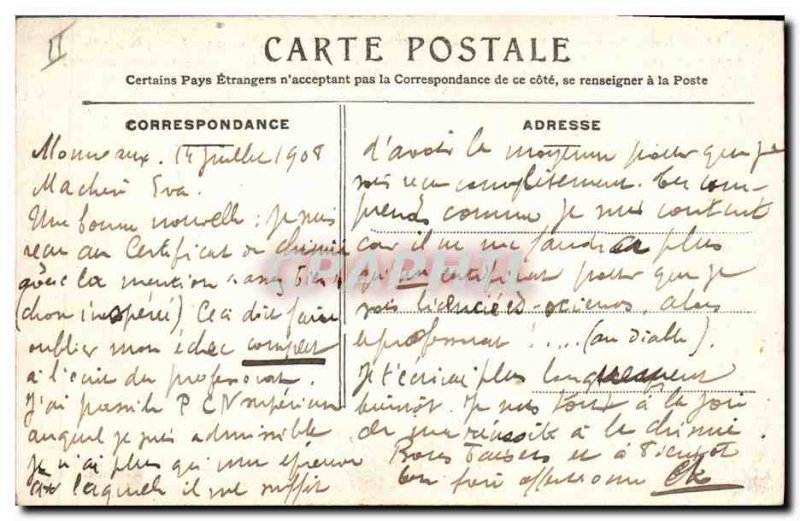 II
CARTE POSTALE
Certains Pays Étrangers n'acceptant pas la Correspondance de ce côté, se renseigner à la Poste
CORRESPONDANCE
14 Juillet 1908
Ma chère Eva.
Une bonne nouvelle : Je suis
reçu au Certificat de chimie
avec la mention "assez bien"
(chose inespérée) Ceci doit faire
oublier mon échec complet
à l'écrit du professorat.
J'ai passé le P C N supérieur
auquel je suis admissible
Je n'ai plus qu'une épreuve
à laquelle il me suffit
ADRESSE
d'avoir la moyenne pour que je
sois reçu complètement. Tu com-
prends comme je suis content
car il ne me faudra plus
qu'un certificat pour que je
sois licencié ès-sciences, alors
le professorat !.... (au diable).
Je t'écrirai plus longuement
bientôt. Je suis tout à la joie
de ma réussite à la chimie.
Bons baisers et à bientôt
ton frère affectionné
CRAPHIL